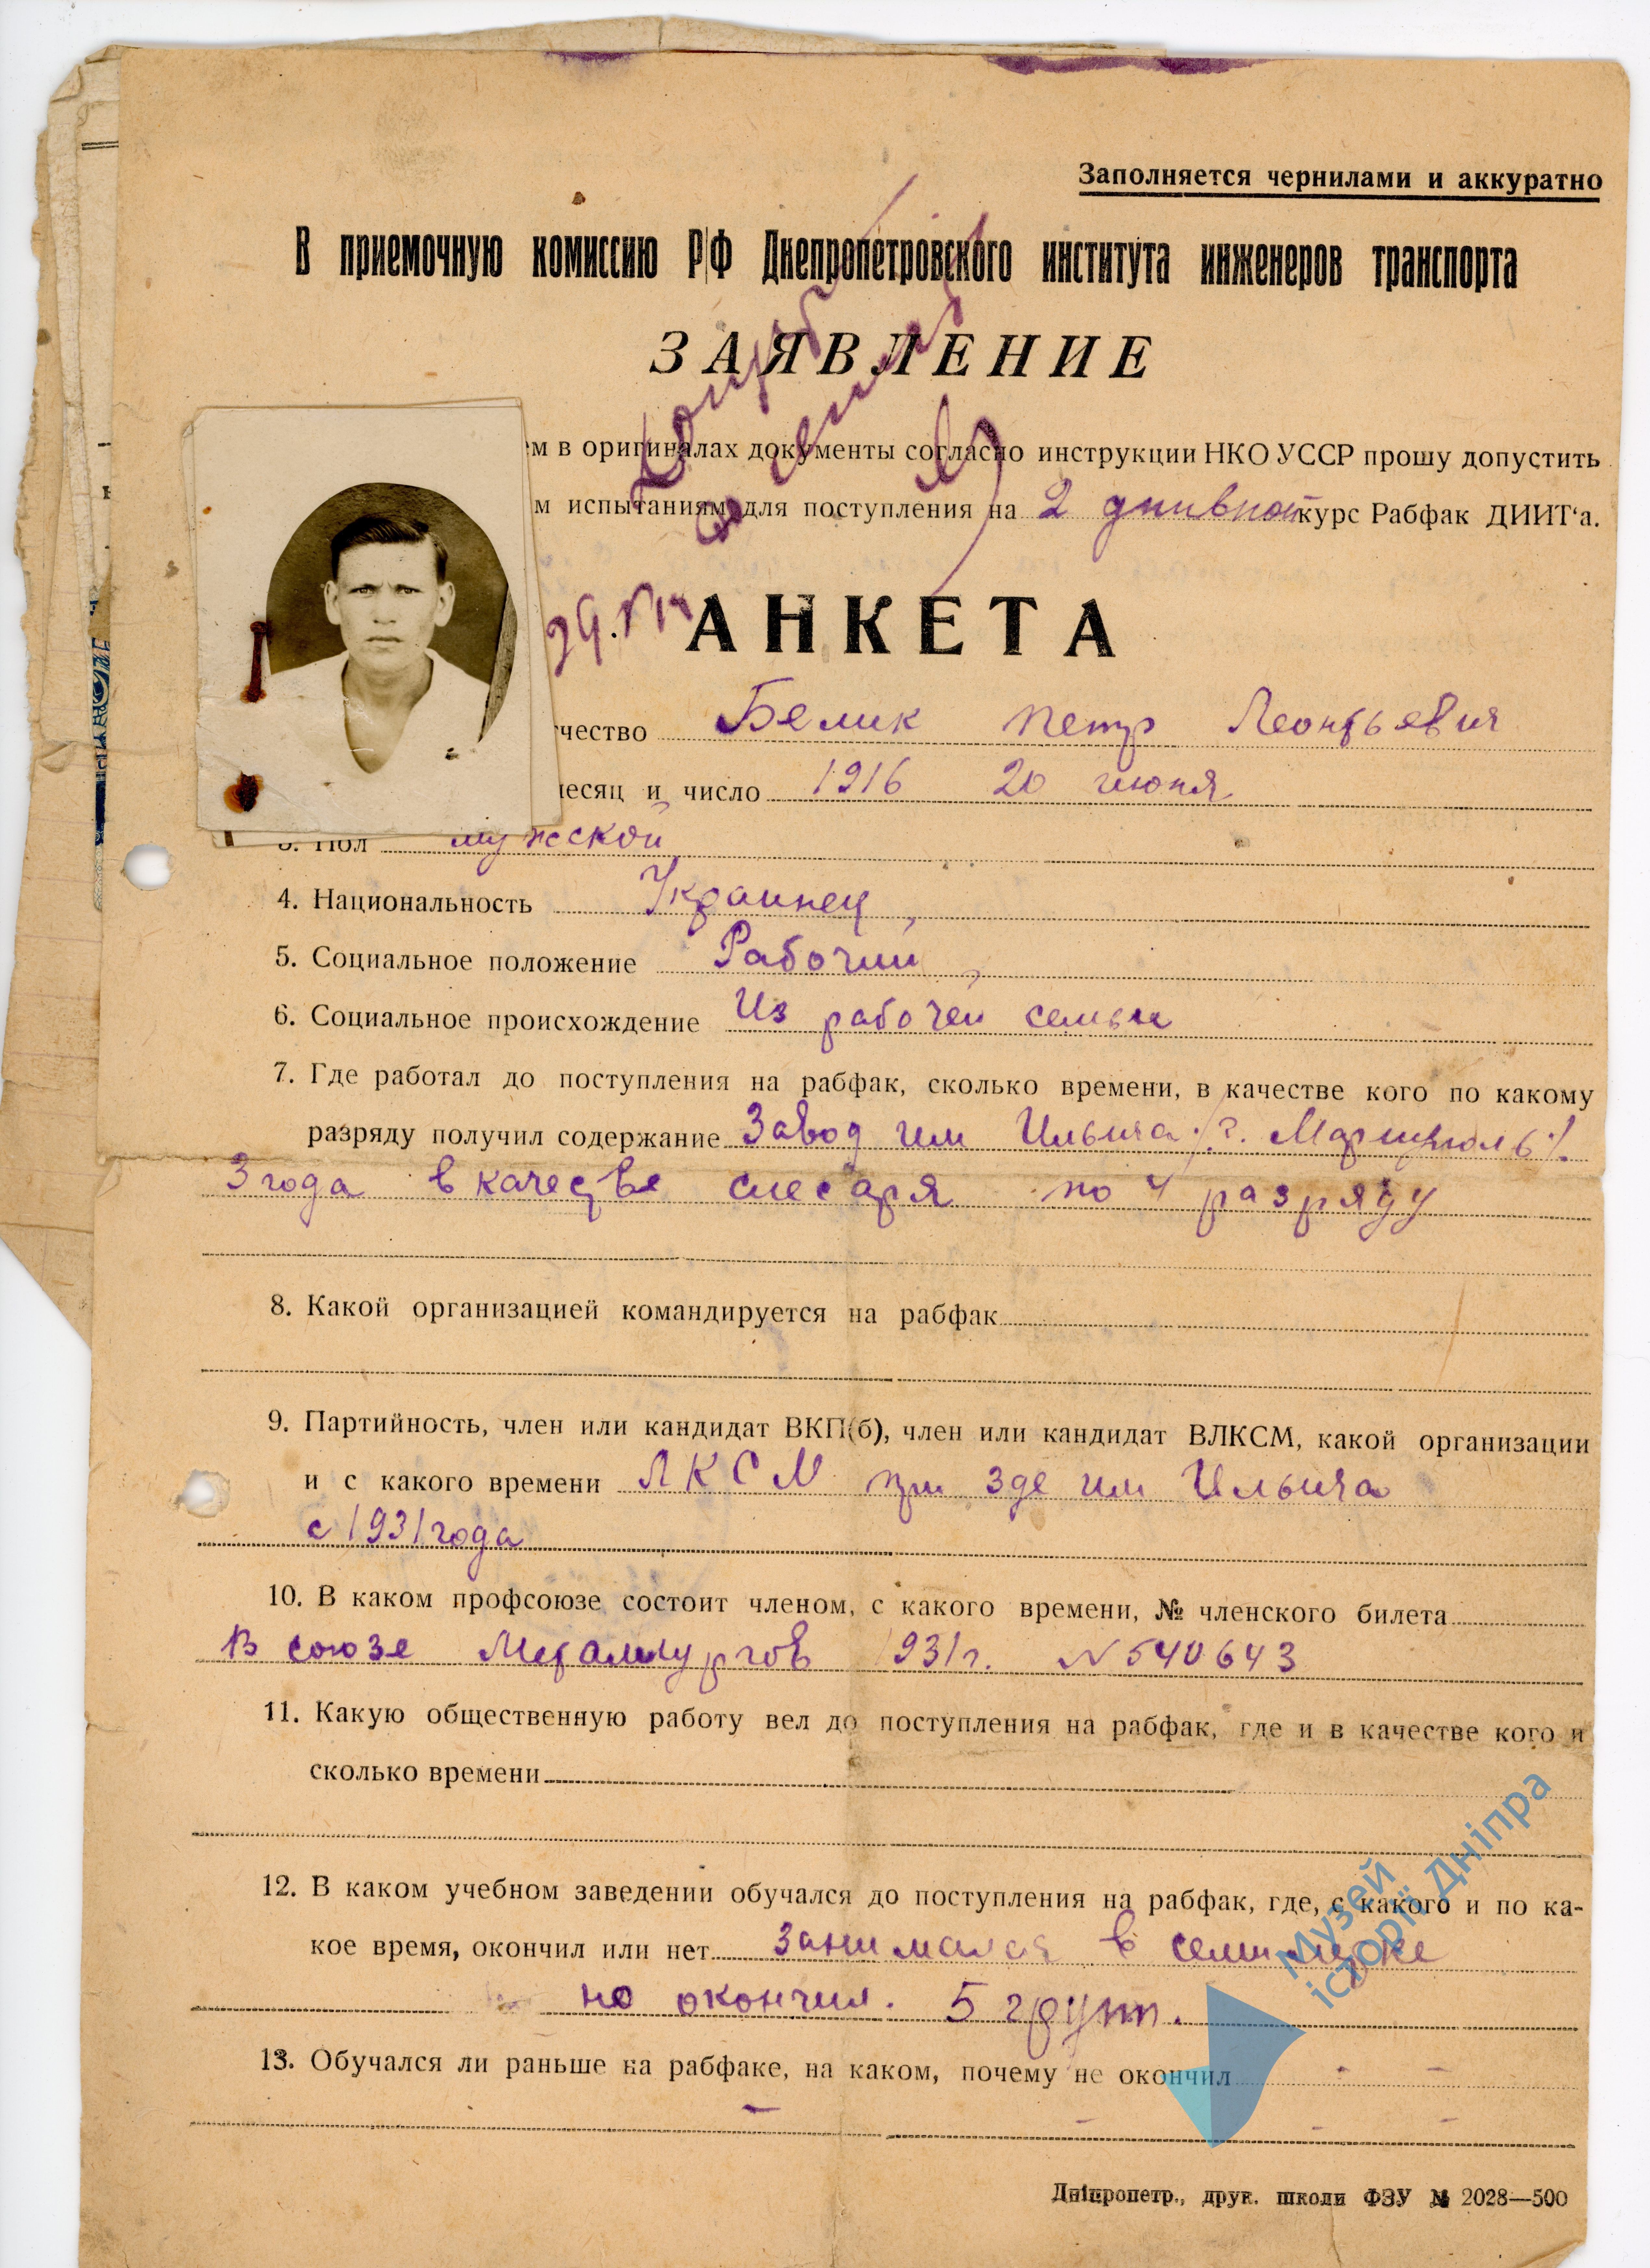 Заполняется чернилами и аккуратно
В приемочную комиссию Р/Ф Днепропетровского института инженеров транспорта
ЗАЯВЛЕНИЕ
ем в оригиналах документы согласно инструкции НКО УССР прошу допустить
м испытаниям для поступления на 2 днивной курс Рабфак ДИИТ‘а.
АНКЕТА
чество Белик Петр Леонтьевич
месяц и число 1916 20 июня
3. Пол мужской
4. Национальность Украинец,
5. Социальное положение Рабочий,
6. Социальное происхождение Из рабочей семьи
7. Где работал до поступления на рабфак, сколько времени, в качестве кого по какому
разряду получил содержание Завод им Ильича /г. Мариуполь/.
3 года в качестве слесаря по 4 разряду
8. Какой организацией командируется на рабфак
9. Партийность, член или кандидат ВКП(б), член или кандидат ВЛКСМ, какой организации
и с какого времени ЛКСМ при зде им Ильича
с 1931 года
10. В каком профсоюзе состоит членом, с какого времени, № членского билета
В союзе Металлургов 1931 г. N 540643
11. Какую общественную работу вел до поступления на рабфак, где и в качестве кого и
сколько времени
12. В каком учебном заведении обучался до поступления на рабфак, где, с какого и по ка-
кое время, окончил или нет занимался в семилетке
но окончил. 5 групп.
13. Обучался ли раньше на рабфаке, на каком, почему не окончил - -
- - - -
Дніпропетр., друк. школи ФЗУ № 2028—500
Музей
історії Дніпра